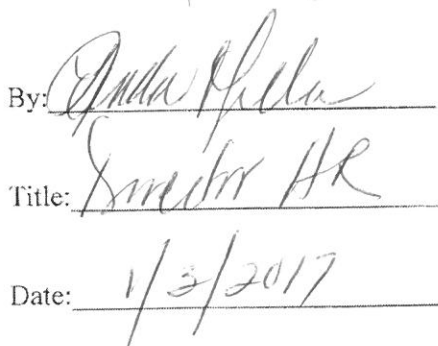 By:
Title: Director HR
Date: 1/3/2017